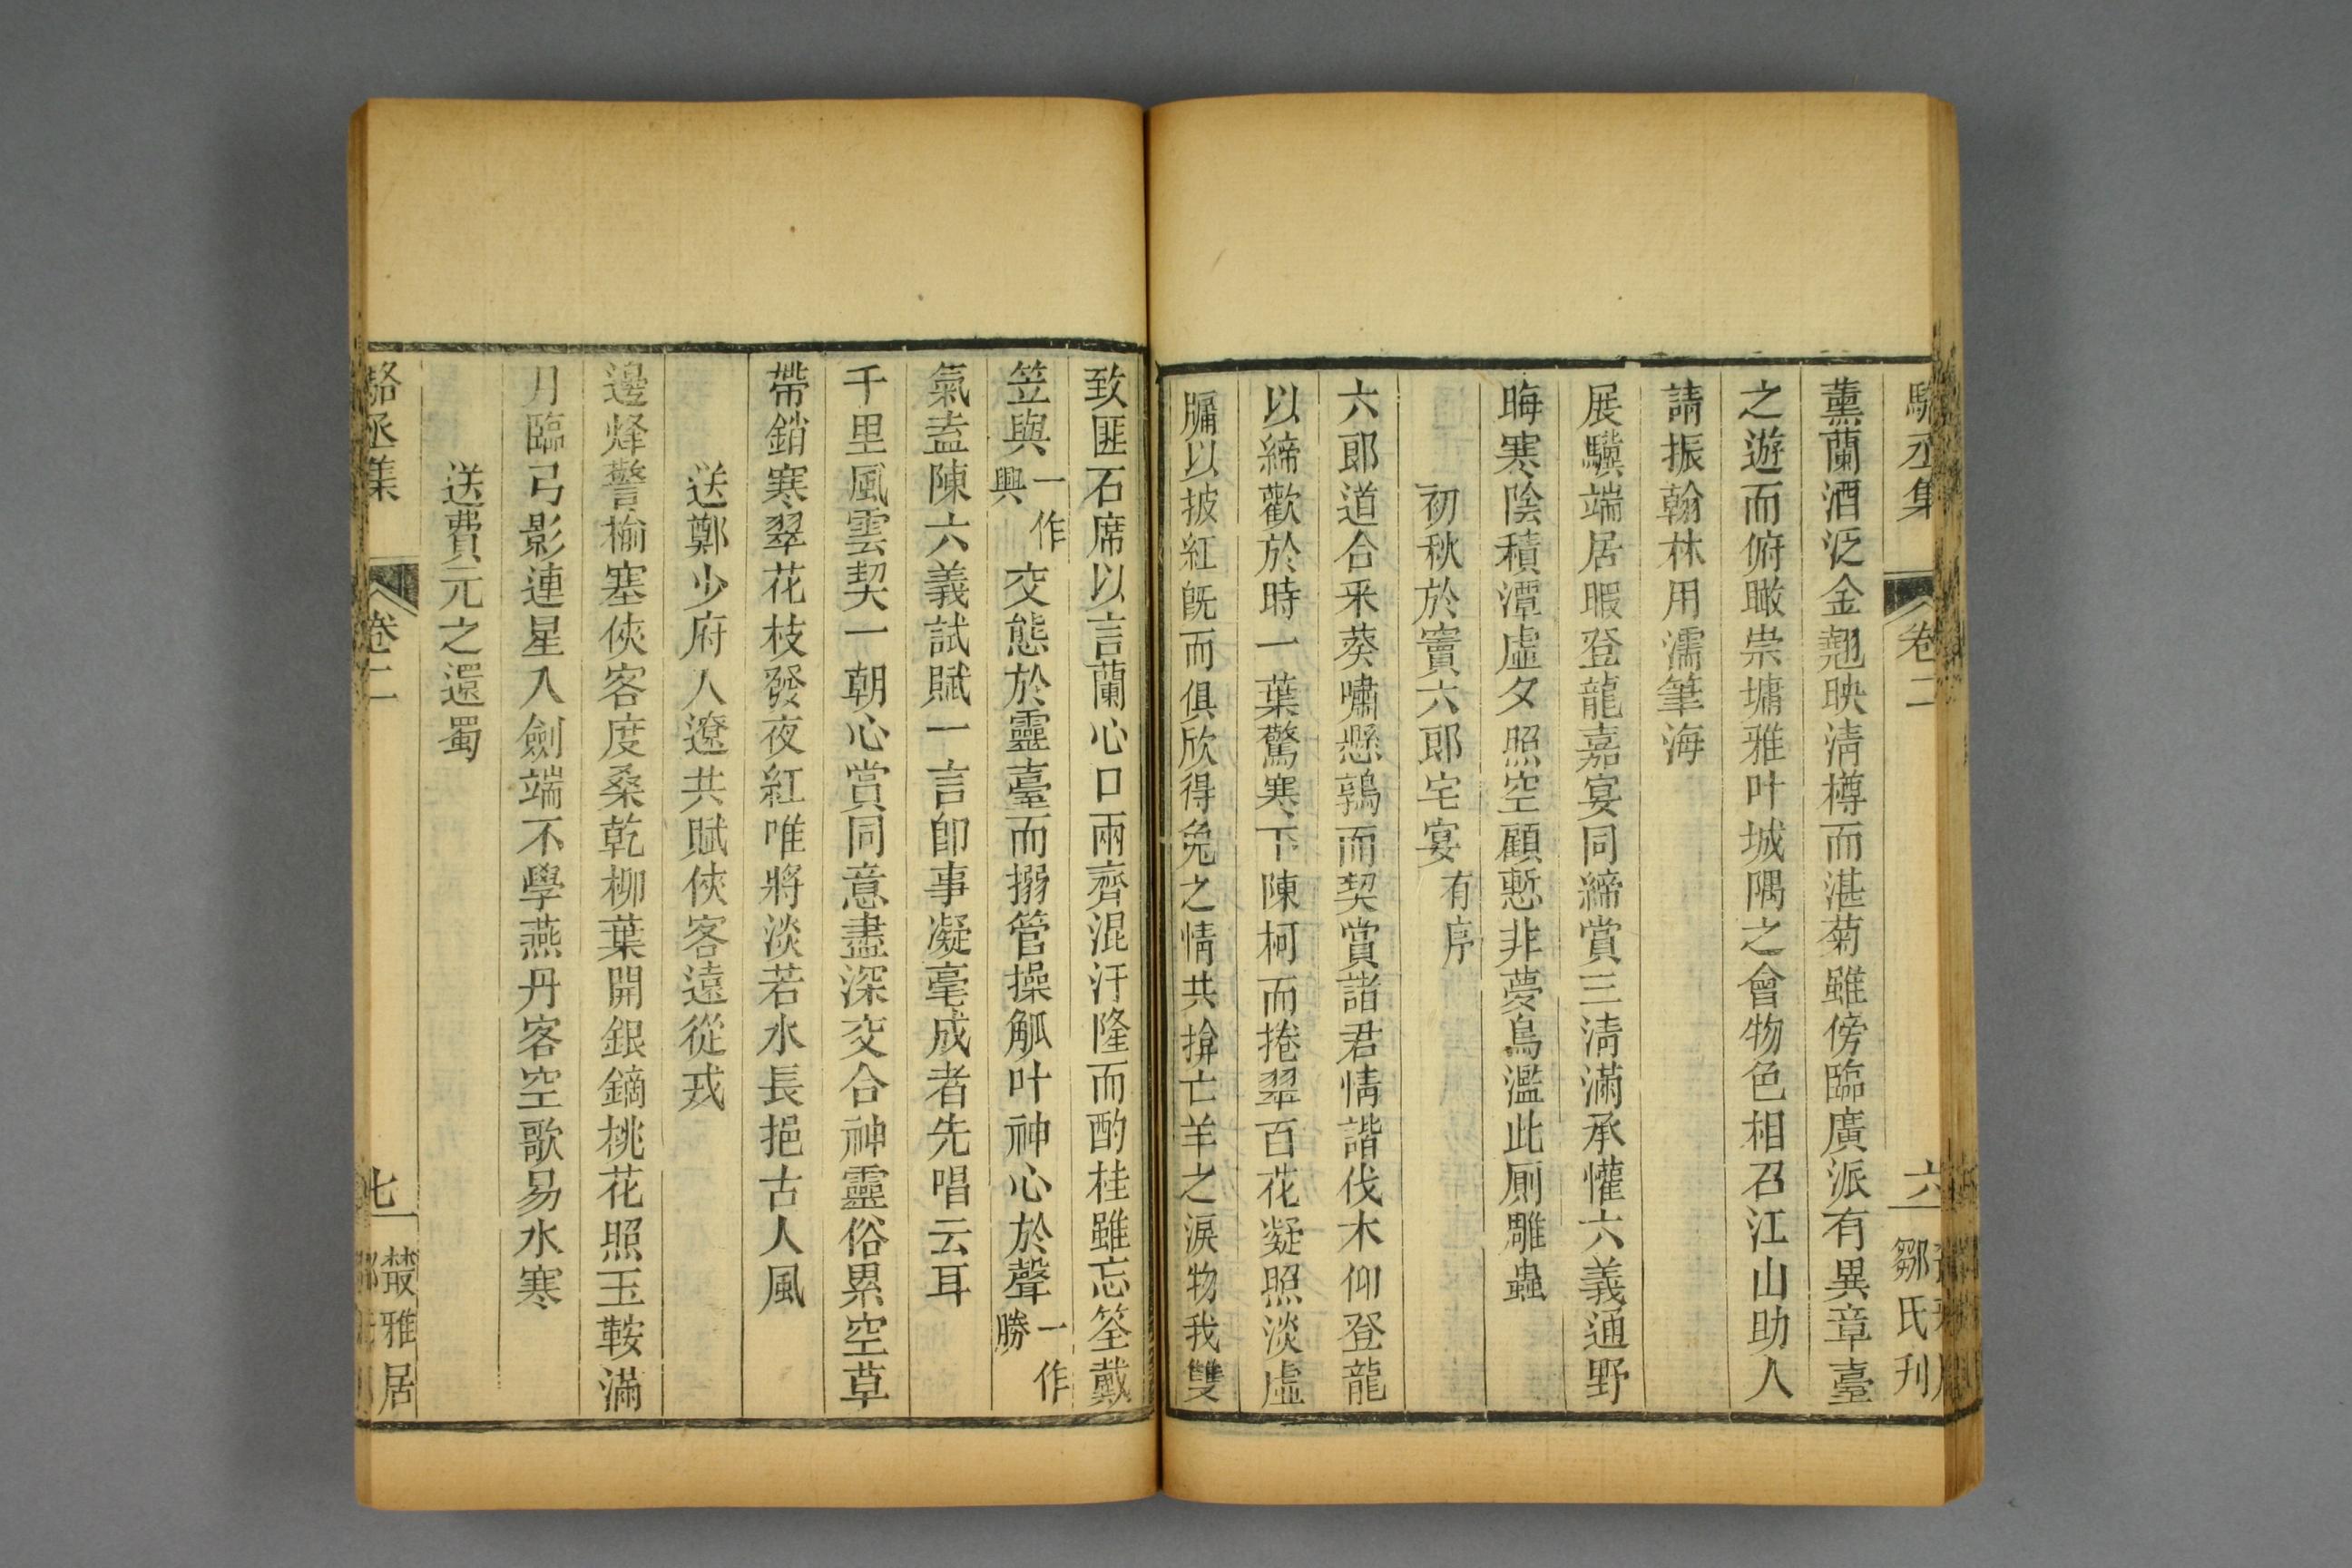 駱丞集 卷二 六 鄒氏刋
薰蘭酒泛金翹映淸樽而湛菊雖傍臨廣派有異章臺
之遊而俯瞰崇墉雅叶城隅之會物色相召江山助人
請振翰林用濡筆海
展驥端居暇登龍嘉宴同締賞三淸滿承懽六義通野
晦寒陰積潭虛夕照空顧慙非夢鳥濫此厠雕蟲
初秋於竇六郎宅宴有序
六郎道合采葵嘯懸鶉而契賞諸君情諧伐木仰登龍
以締歡於時一葉驚寒下陳柯而捲翠百花凝照淡虛
牖以披紅旣而俱欣得兔之情共揜亡羊之淚物我雙
致匪石席以言蘭心口兩齊混汙隆而酌桂雖忘筌戴
笠與一作興交態於靈臺而搦管操觚叶神心於聲一作勝
氣盍陳六義試賦一言卽事凝毫成者先唱云耳
千里風雲契一朝心賞同意盡深交合神靈俗累空草
帶銷寒翠花枝發夜紅唯將淡若水長挹古人風
送鄭少府入遼共賦俠客遠從戎
邊烽警榆塞俠客度桑乾柳葉開銀鏑桃花照玉鞍滿
月臨弓影連星入劍端不學燕丹客空歌易水寒
送費元之還蜀
駱丞集 卷二 七 叢雅居